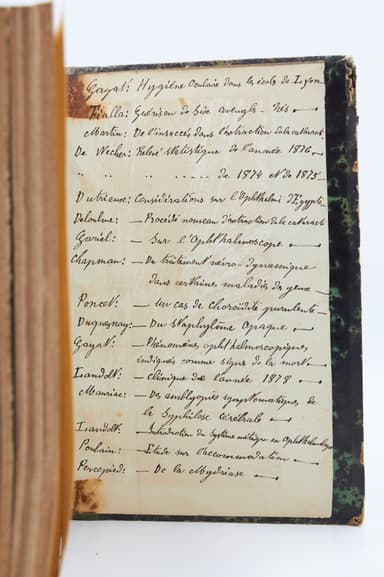 Gayat: Hygiène Oculaire dans les école de Lyon
Fialla: Guérison de Six aveugle-Nés
Martin: De l'insuccès dans l'extraction de la cataract
De Wecker: Relevé statistique de l'année 1876
" " " - - - - - de 1874 et de 1875
Dutrieux: Considérations sur l'Ophthalmi d'Egypte
: — Procédé nouveau d'extraction de la cataract
Gariel: — Sur l'Ophthalmoscope
Chapman: — Du traitement névro-dynamique
dans certaines maladies des yeux
Poncet: — Un cas de choroïdite purulente
Duquesnay: — Du Staphylôme Opaque
Gayat: — Phénomènes ophthalmoscopiques
indiqués comme signes de la mort
Landolt: — clinique de l'année 1878
Mauriac: — Des amblyopies symptomatiques de
la Syphilose cérébrale
Landolt: — Introduction du système métrique en Ophthalmologie
Poulain: — Etude sur l'accommodation
Percepied: — De la Mydriase